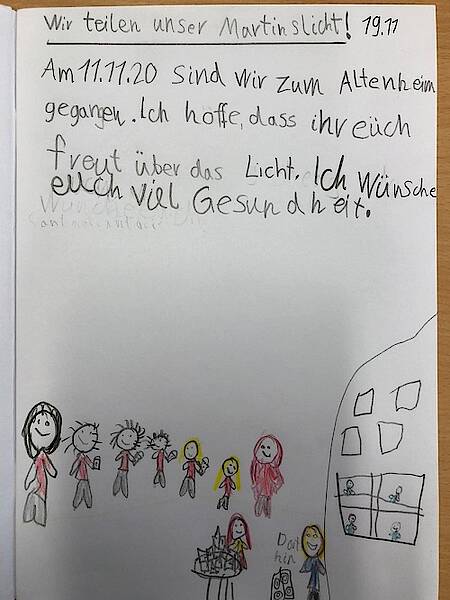 Wir teilen unser Martinslicht! 19.11
Am 11.11.20 sind wir zum Altenheim
gegangen. Ich hoffe, dass ihr eüch
freut über das Licht. Ich wünsche
euch viel Gesundheit.
Dort
hin